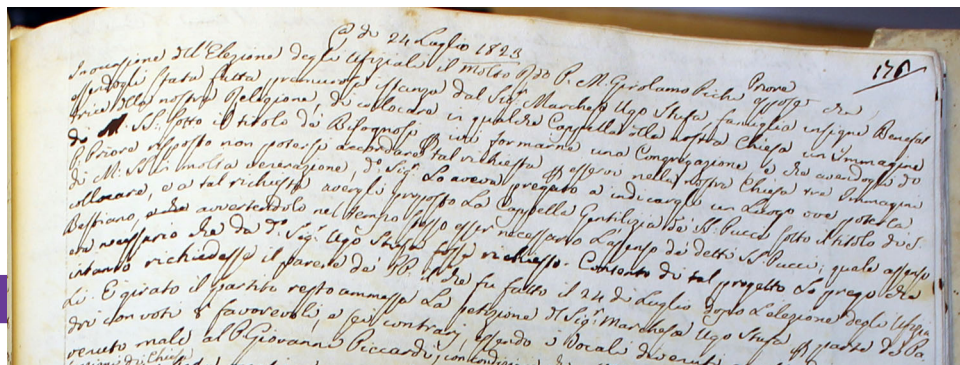 A dì 24 Luglio 1823
176
In occasione dell'Elezione degli Ufiziali il Molto Rdo P. M. Girolamo Priore espose che
essendogli stata fatta premurosa istanza dal Sigr Marchese Ugo Stufa, famiglia insigne Benefat
trice della nostra Religione, di collocare in qualche Cappella della nostra Chiesa un Immagine
di M. SS. sotto il titolo de Bisognosi ivi formarne una Congregazione, e che avendogli do
P. Priore risposto non potersi accordare tal richiesta esservi nella nostra Chiesa tre Immagini
di M: SS. in molta venerazione, do Sigr Lo aveva pregato a indicargli un Luogo ove poterla
collocare, e a tal richiesta avergli proposto La Cappella Gentilizia de SS. Pucci sotto il titolo di S.
Bastiano, avvertendolo nel tempo stesso esser necessario L'assenso de detti SS. Pucci; quale assenso
era necessario che da do Sigr Ugo Stufa fosse richiesto. Contento di tal progetto Lo pregò che
intanto richiedesse il parere de PP. il che fu fatto il 24 di Luglio dopo L'elezione degli Ufizia
Li. E girato il partito restò ammessa La petizione del Sigr Marchese Ugo Stufa parte de Pa
dri con voti favorevoli, e sei contrarj, essendo i Vocali
venuto male al P. Giovanni Piccardi; con condizione